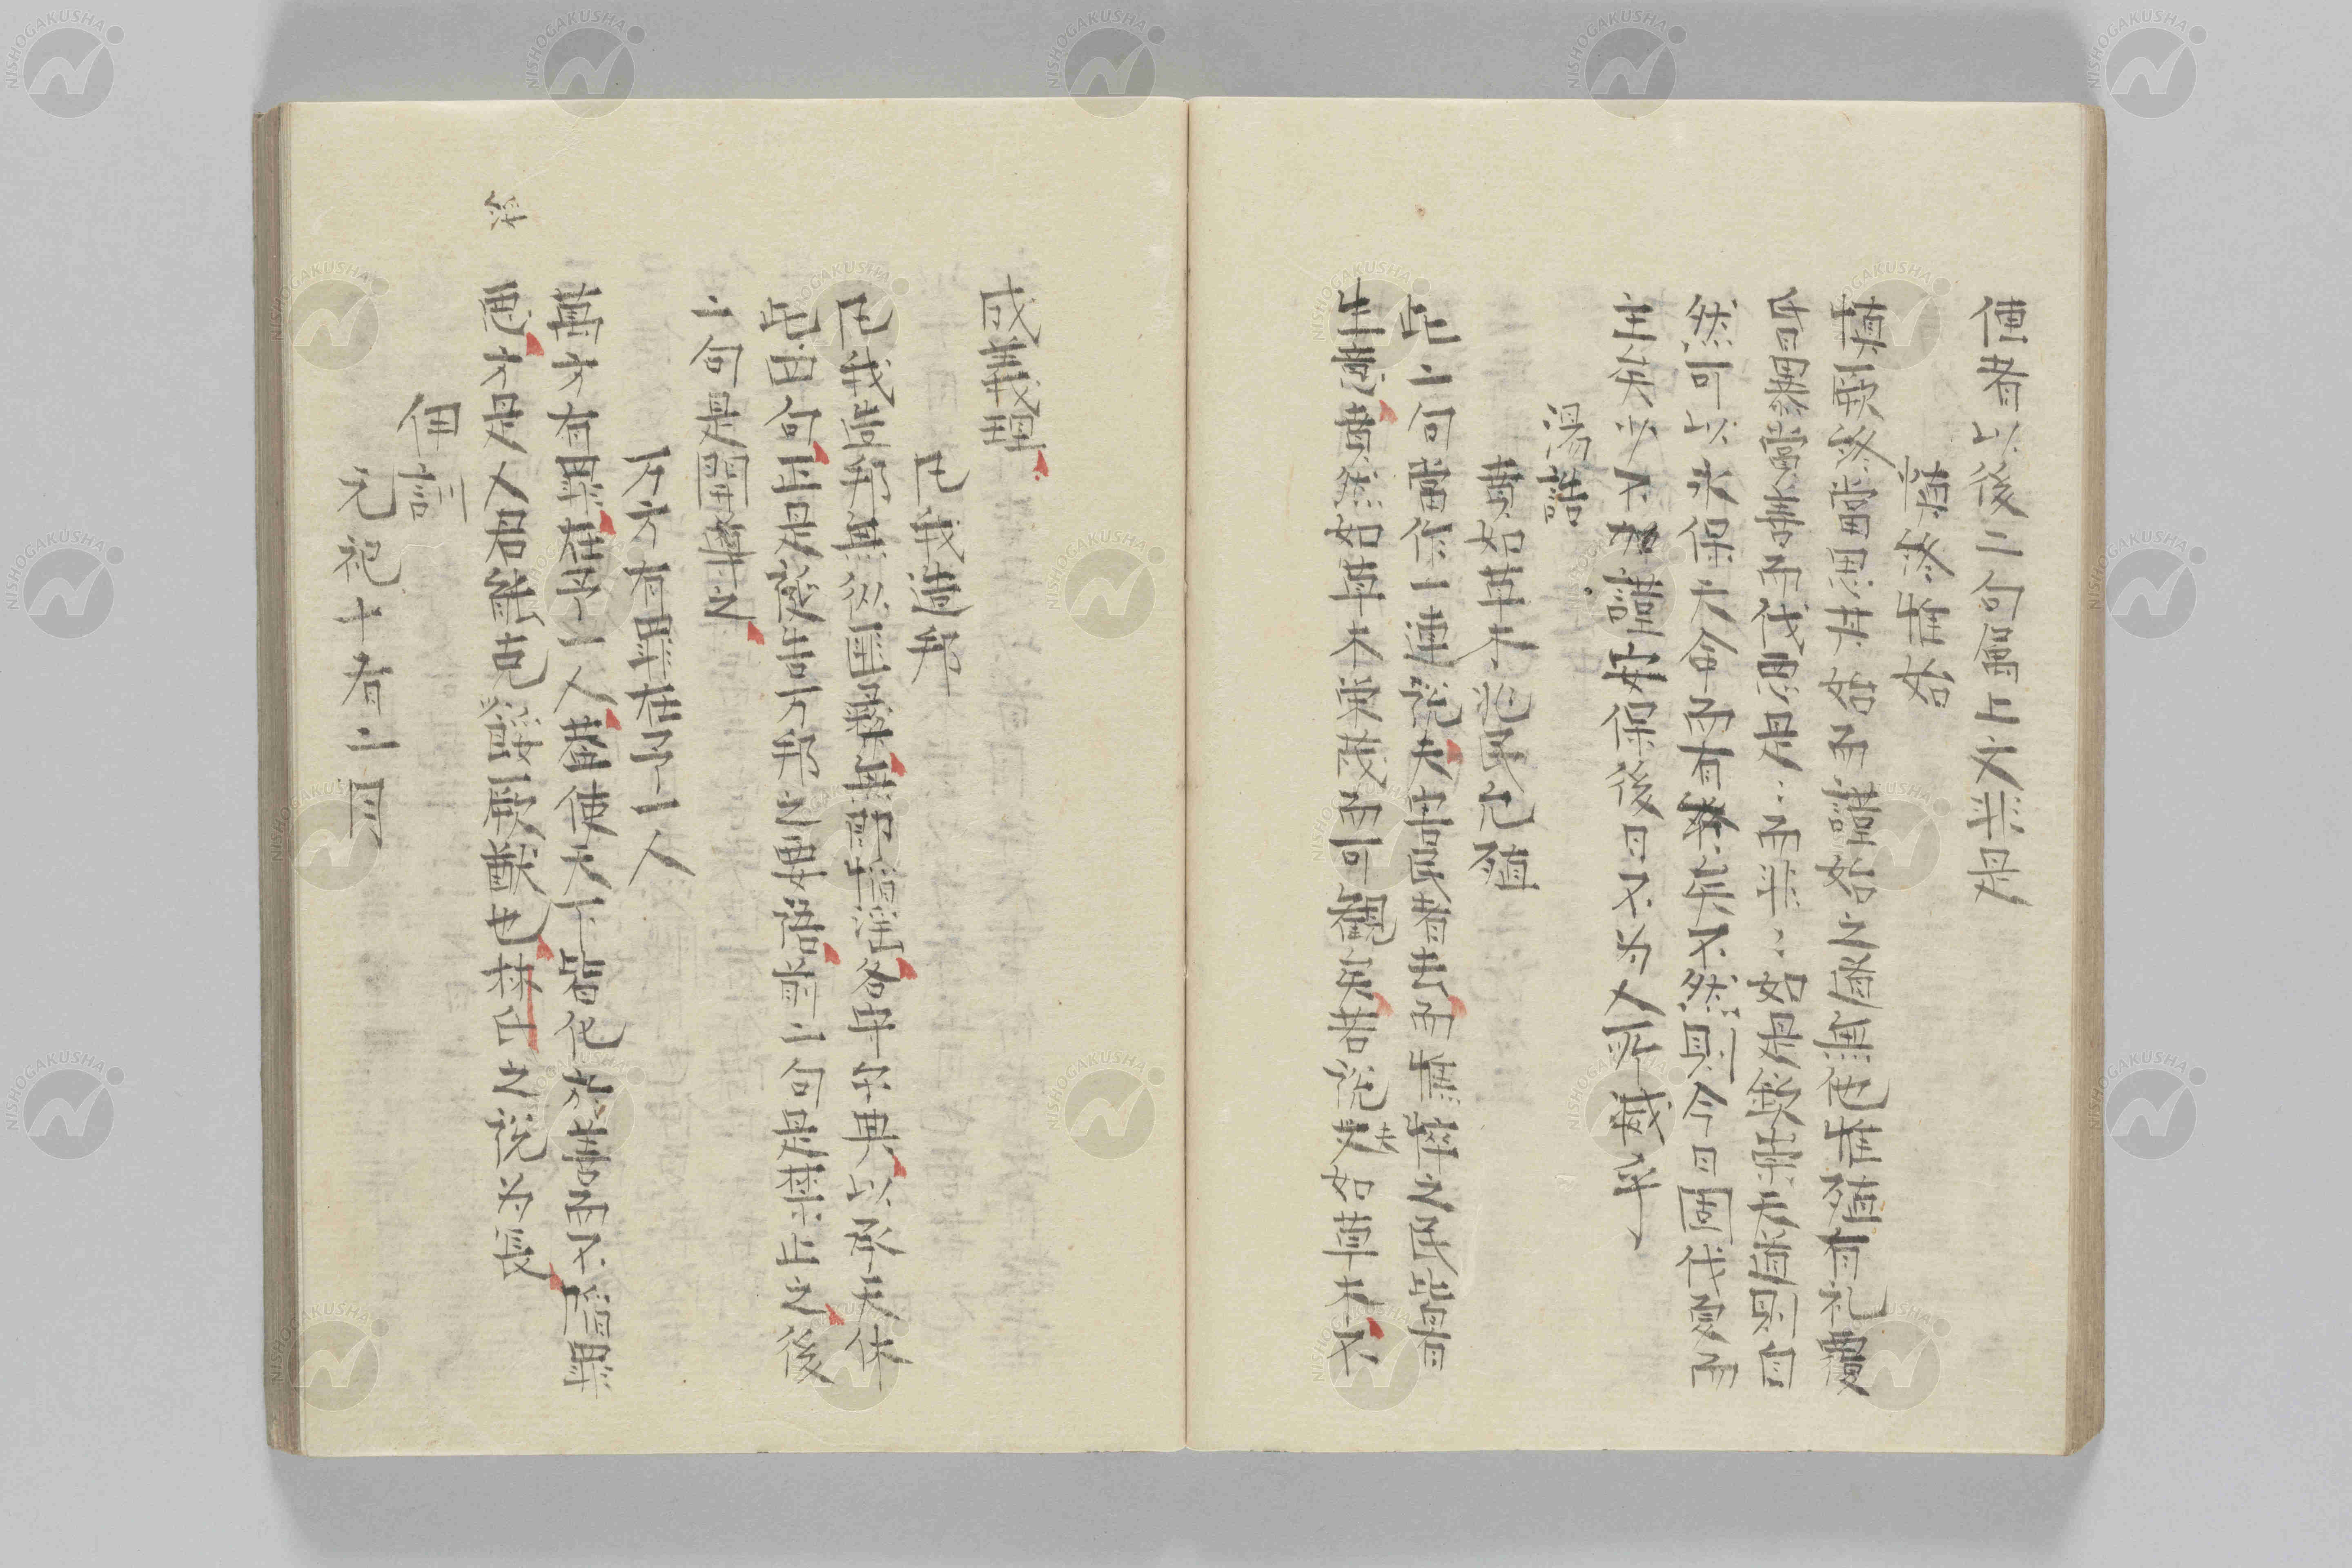 傳者以後二句屬上文非是
愼終惟始
愼厥終當思其始而謹始之道無他在殖有禮覆
昏暴當善而伐惡是〻而非〻如是欽崇天道則自
然可以永保天命而有終矣不然則今日固伐夏而
主安必不謹保後日不為人所滅乎
湯誥
賁如草木兆民允殖
此二句當作一連説夫害民者去而善之政皆
生意賁然如草木暢茂而可觀矣若説如草木不
成義理
凡我造邦
凡我造邦無從匪彝無即慆淫各守爾典以承天休
此四句正是發告万邦之要語前二句是禁止之後
二句是開導之
万方有罪在予一人
萬方有罪在予一人蓋使天下皆化於善而不陷罪
惡方是人君能克綏厥猷也林氏之説為長
伊訓
元祀十有二月
NISHOGAKUSHA